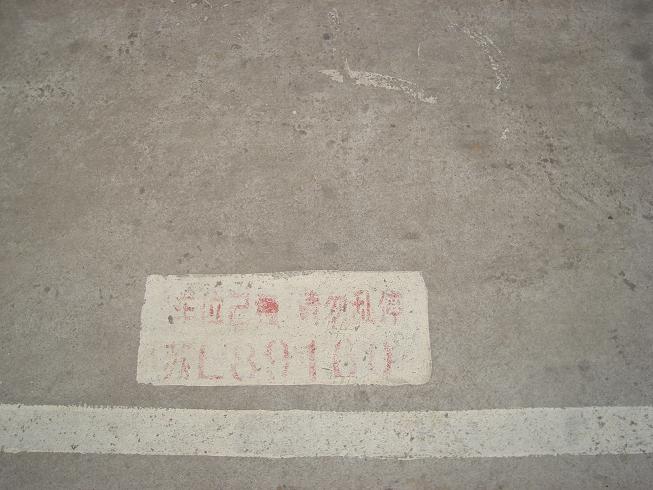 车位已租 请勿乱停
苏L89160